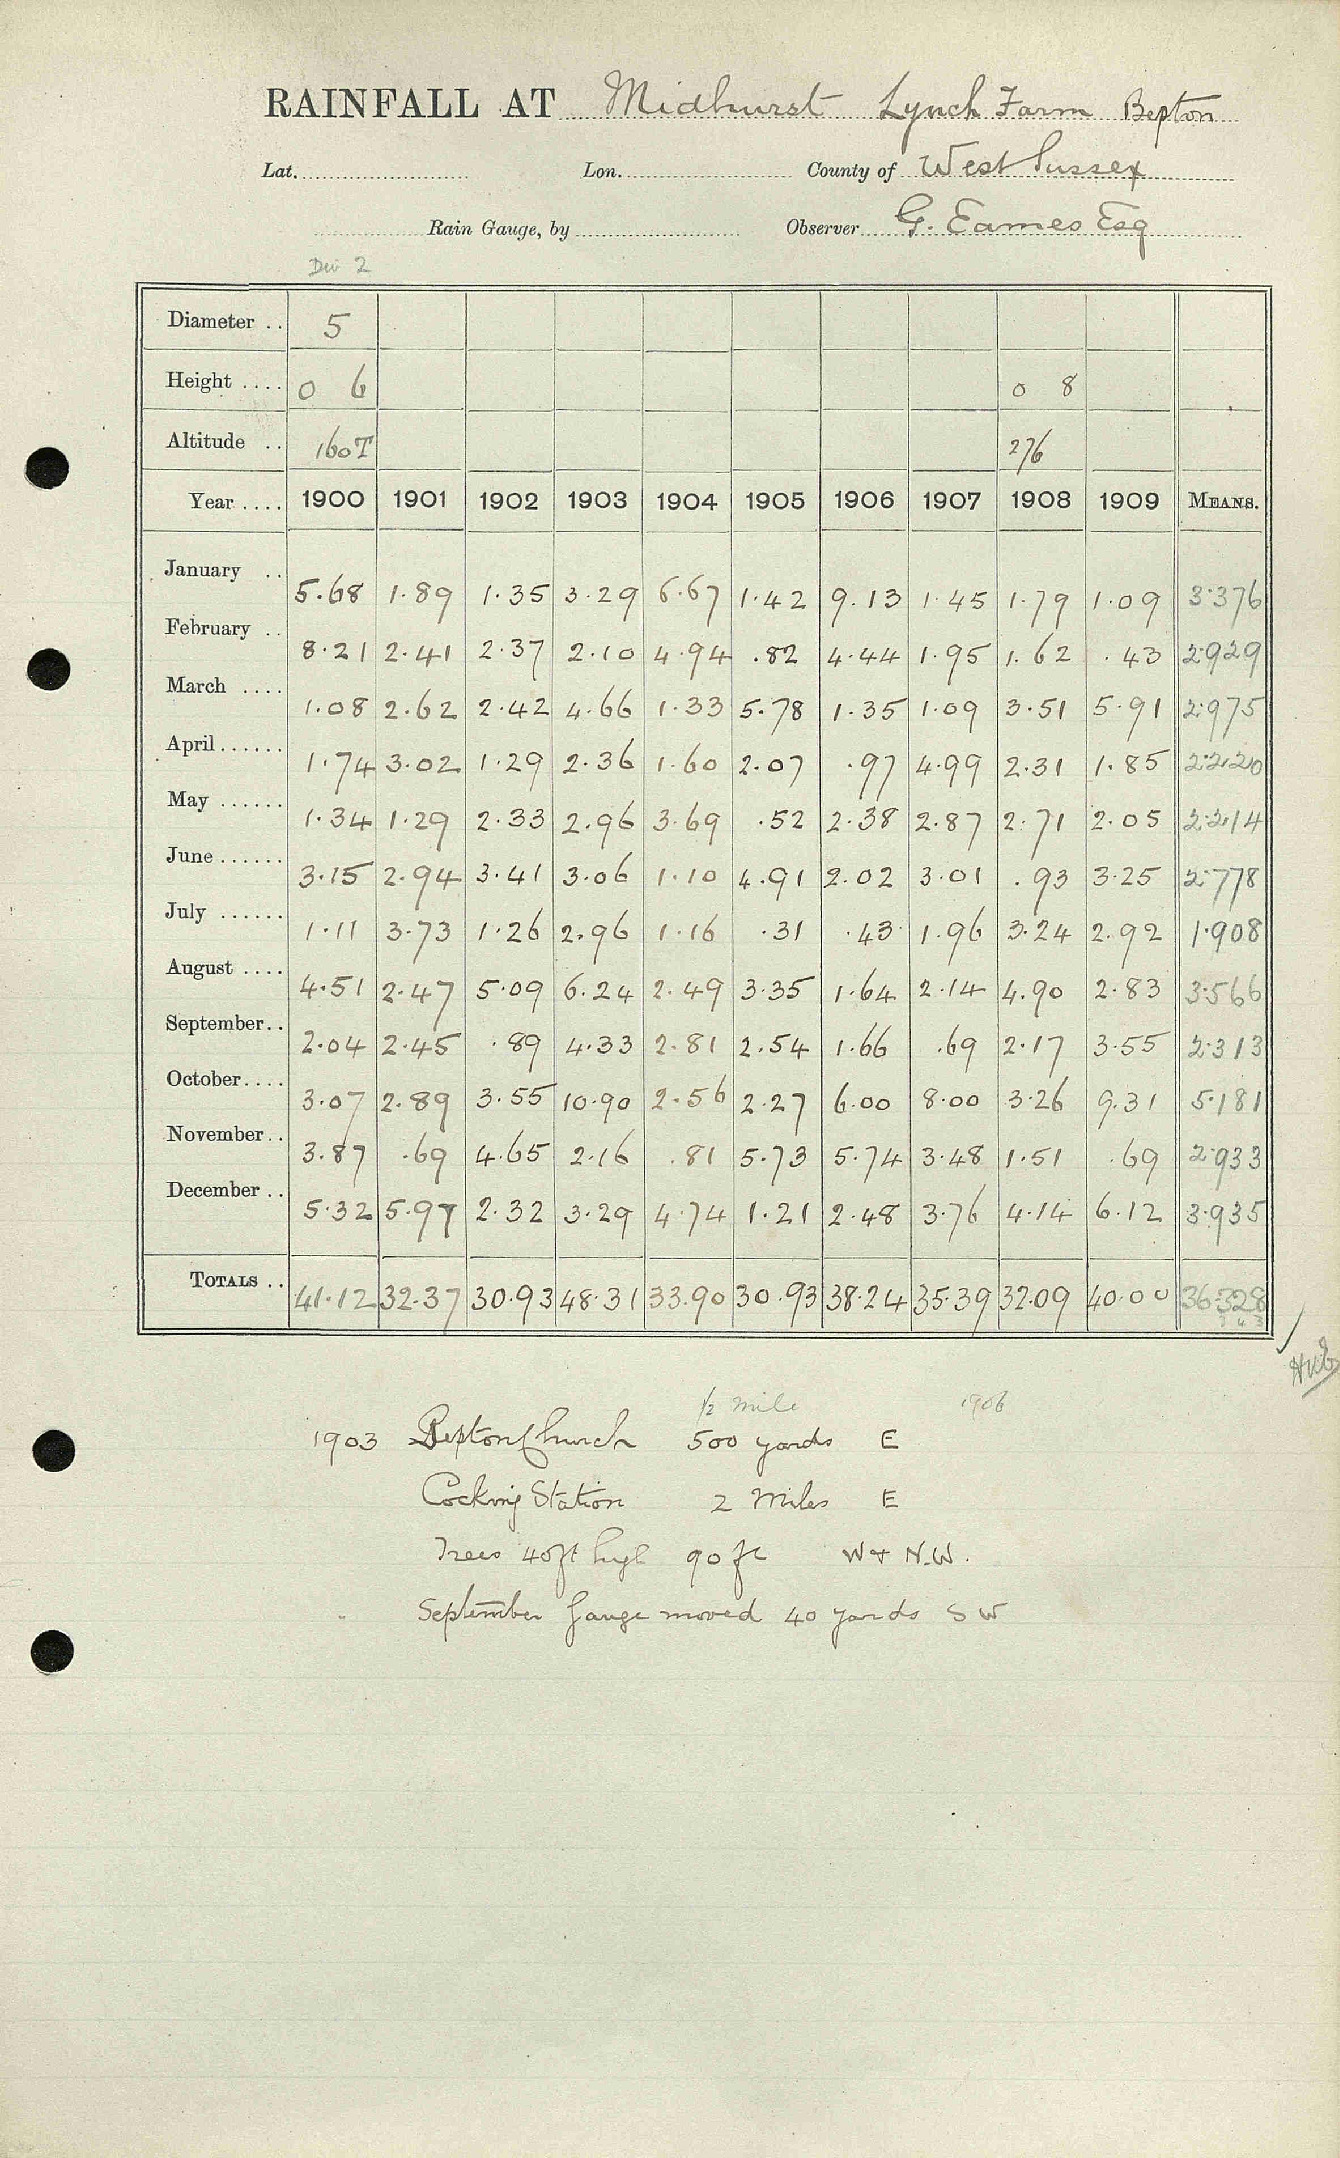 RAINFALL AT Midhurst Lynch Farm Bepton
Lat. Lon. County of West Sussex
Rain Gauge, by Observer G. Eames Esq
Div 2
Diameter .. 5
Height .... 0 6 0 8
Altitude .. 160T 276
Year .... 1900 1901 1902 1903 1904 1905 1906 1907 1908 1909 MEANS.
January .. 5.68 1.89 1.35 3.29 6.67 1.42 9.13 1.45 1.79 1.09 3.376
February .. 8.21 2.41 2.37 2.10 4.94 .82 4.44 1.95 1.62 .43 2.929
March .... 1.08 2.62 2.42 4.66 1.33 5.78 1.35 1.09 3.51 5.91 2.975
April ...... 1.74 3.02 1.29 2.36 1.60 2.07 .97 4.99 2.31 1.85 2.220
May ...... 1.34 1.29 2.33 2.96 3.69 .52 2.38 2.87 2.71 2.05 2.214
June ...... 3.15 2.94 3.41 3.06 1.10 4.91 2.02 3.01 .93 3.25 2.778
July ...... 1.11 3.73 1.26 2.96 1.16 .31 .43 1.96 3.24 2.92 1.908
August .... 4.51 2.47 5.09 6.24 2.49 3.35 1.64 2.14 4.90 2.83 3.566
September .. 2.04 2.45 .89 4.33 2.81 2.54 1.66 .69 2.17 3.55 2.313
October .... 3.07 2.89 3.55 10.90 2.56 2.27 6.00 8.00 3.26 9.31 5.181
November .. 3.87 .69 4.65 2.16 .81 5.73 5.74 3.48 1.51 .69 2.933
December .. 5.32 5.97 2.32 3.29 4.74 1.21 2.48 3.76 4.14 6.12 3.935
TOTALS .. 41.12 32.37 30.93 48.31 33.90 30.93 38.24 35.39 32.09 40.00 36.328
1/2 mile 1906
1903 Bepton Church 500 yards E
Cocking Station 2 Miles E
Trees 40ft high 90 ft W + N.W.
September Gauge moved 40 yards S W